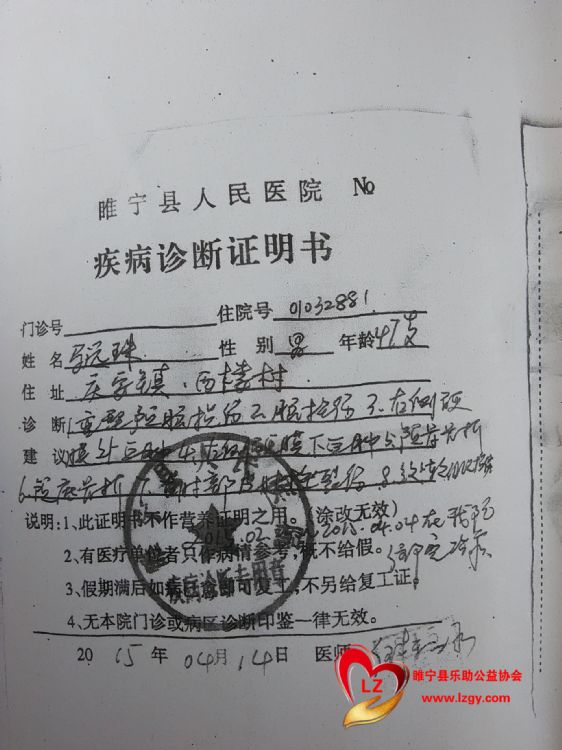 睢宁县人民医院 No
疾病诊断证明书
门诊号 住院号 01032881
姓名 珠 性别 男 年龄 47岁
住址 庆安镇、西楼村
诊断 1.重型颅脑损伤 2.脑挫伤 3.右侧硬
建议 膜外血肿 硬膜下血肿 颅骨骨折
6.颅底骨折 7.
说明:1、此证明书不作营养证明之用。(涂改无效)
2015.02 2015.04.04在我院
2、有医疗单位者只作病情参考,概不给假。
住院治疗
3、假期满后如病已愈即可复工,不另给复工证。
疾病诊断专用章
4、无本院门诊或病区诊断印鉴一律无效。
2015年04月14日 医师
LZ
睢宁县乐助公益协会
www.lzgy.com